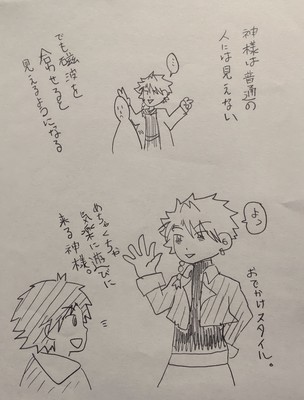 神様は普通の
人には見えない
…
でも磁波を
合わせると
見えるようになる。
よっ
おでかけスタイル。
めちゃくちゃ
気楽に遊びに
来る神様。